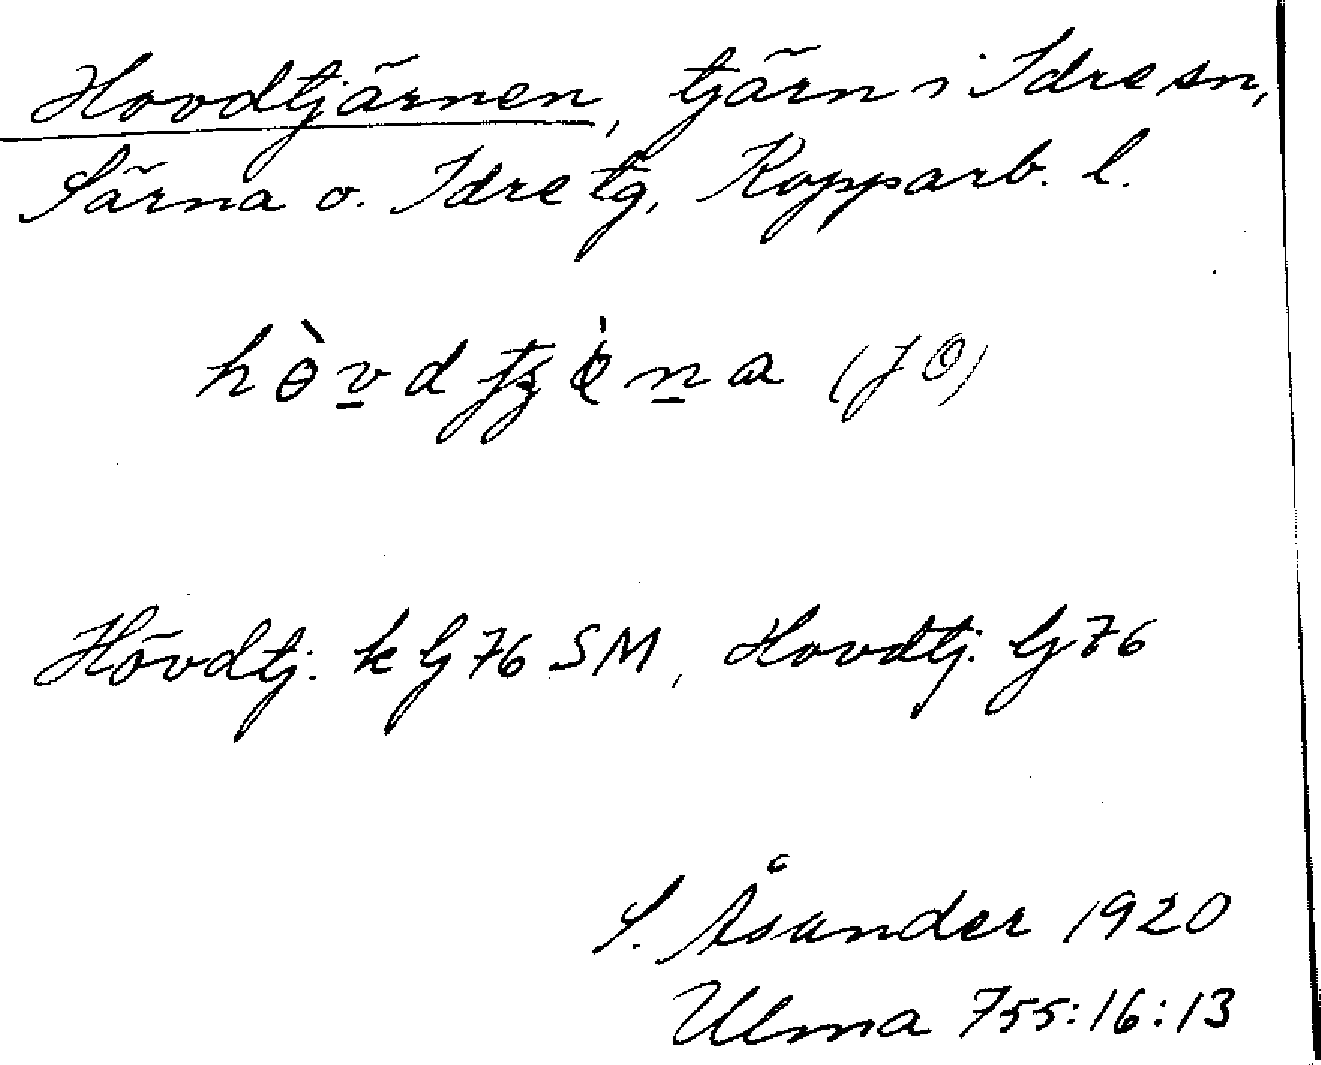 Hovdtjärnen, tjärn i Idre sn,
Särna o. Idre tg, Kopparb. l.
(JO)
Hövdtj. k G 76 SM, Hovdtj. G 76
S. Åsander 1920
Ulma 755:16:13